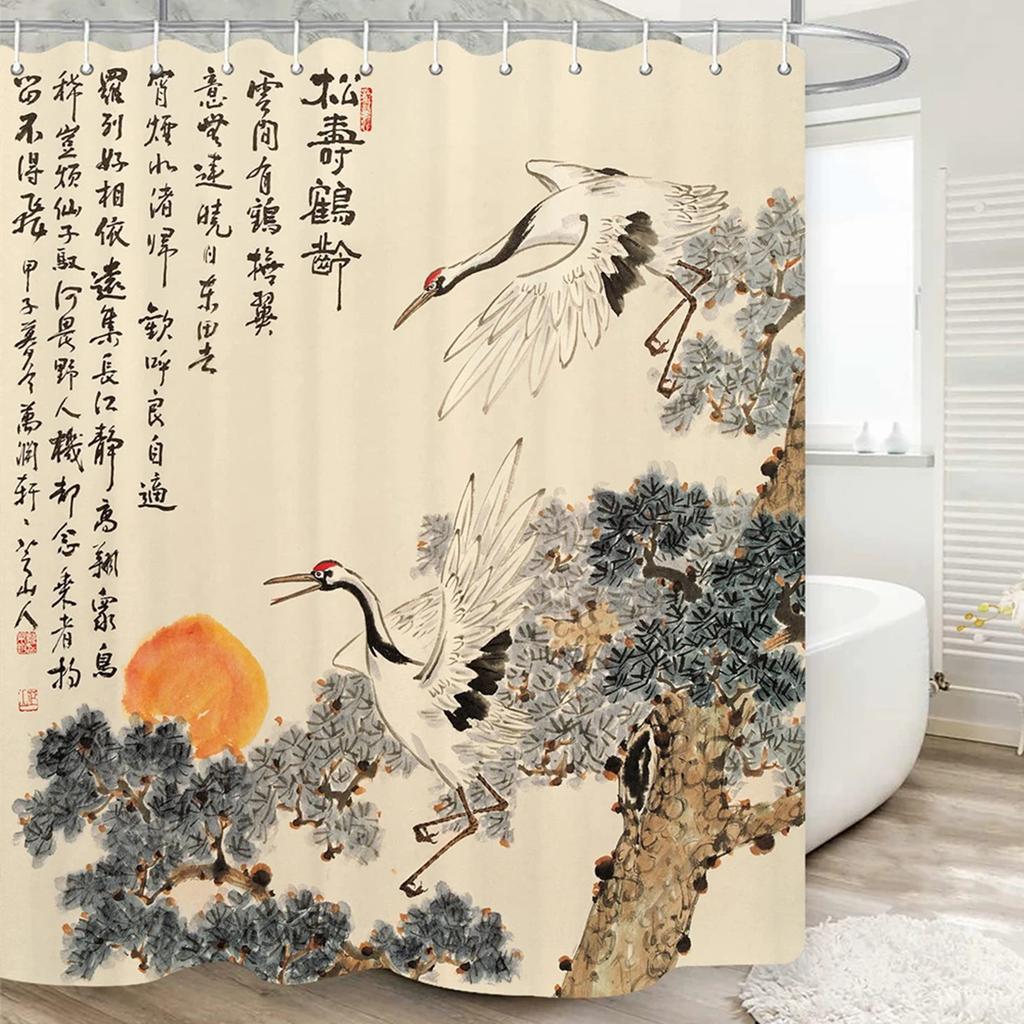 松壽鶴齡
雲間有鶴搖翼
意無達曉日東回去
宵煙水渚歸 歡呼良自適
羅列好相依遠集長江靜高翔衆鳥
稀豈煩仙子馭何畏野人機却念乘者拘
留不得飛 甲子萬潤軒山人